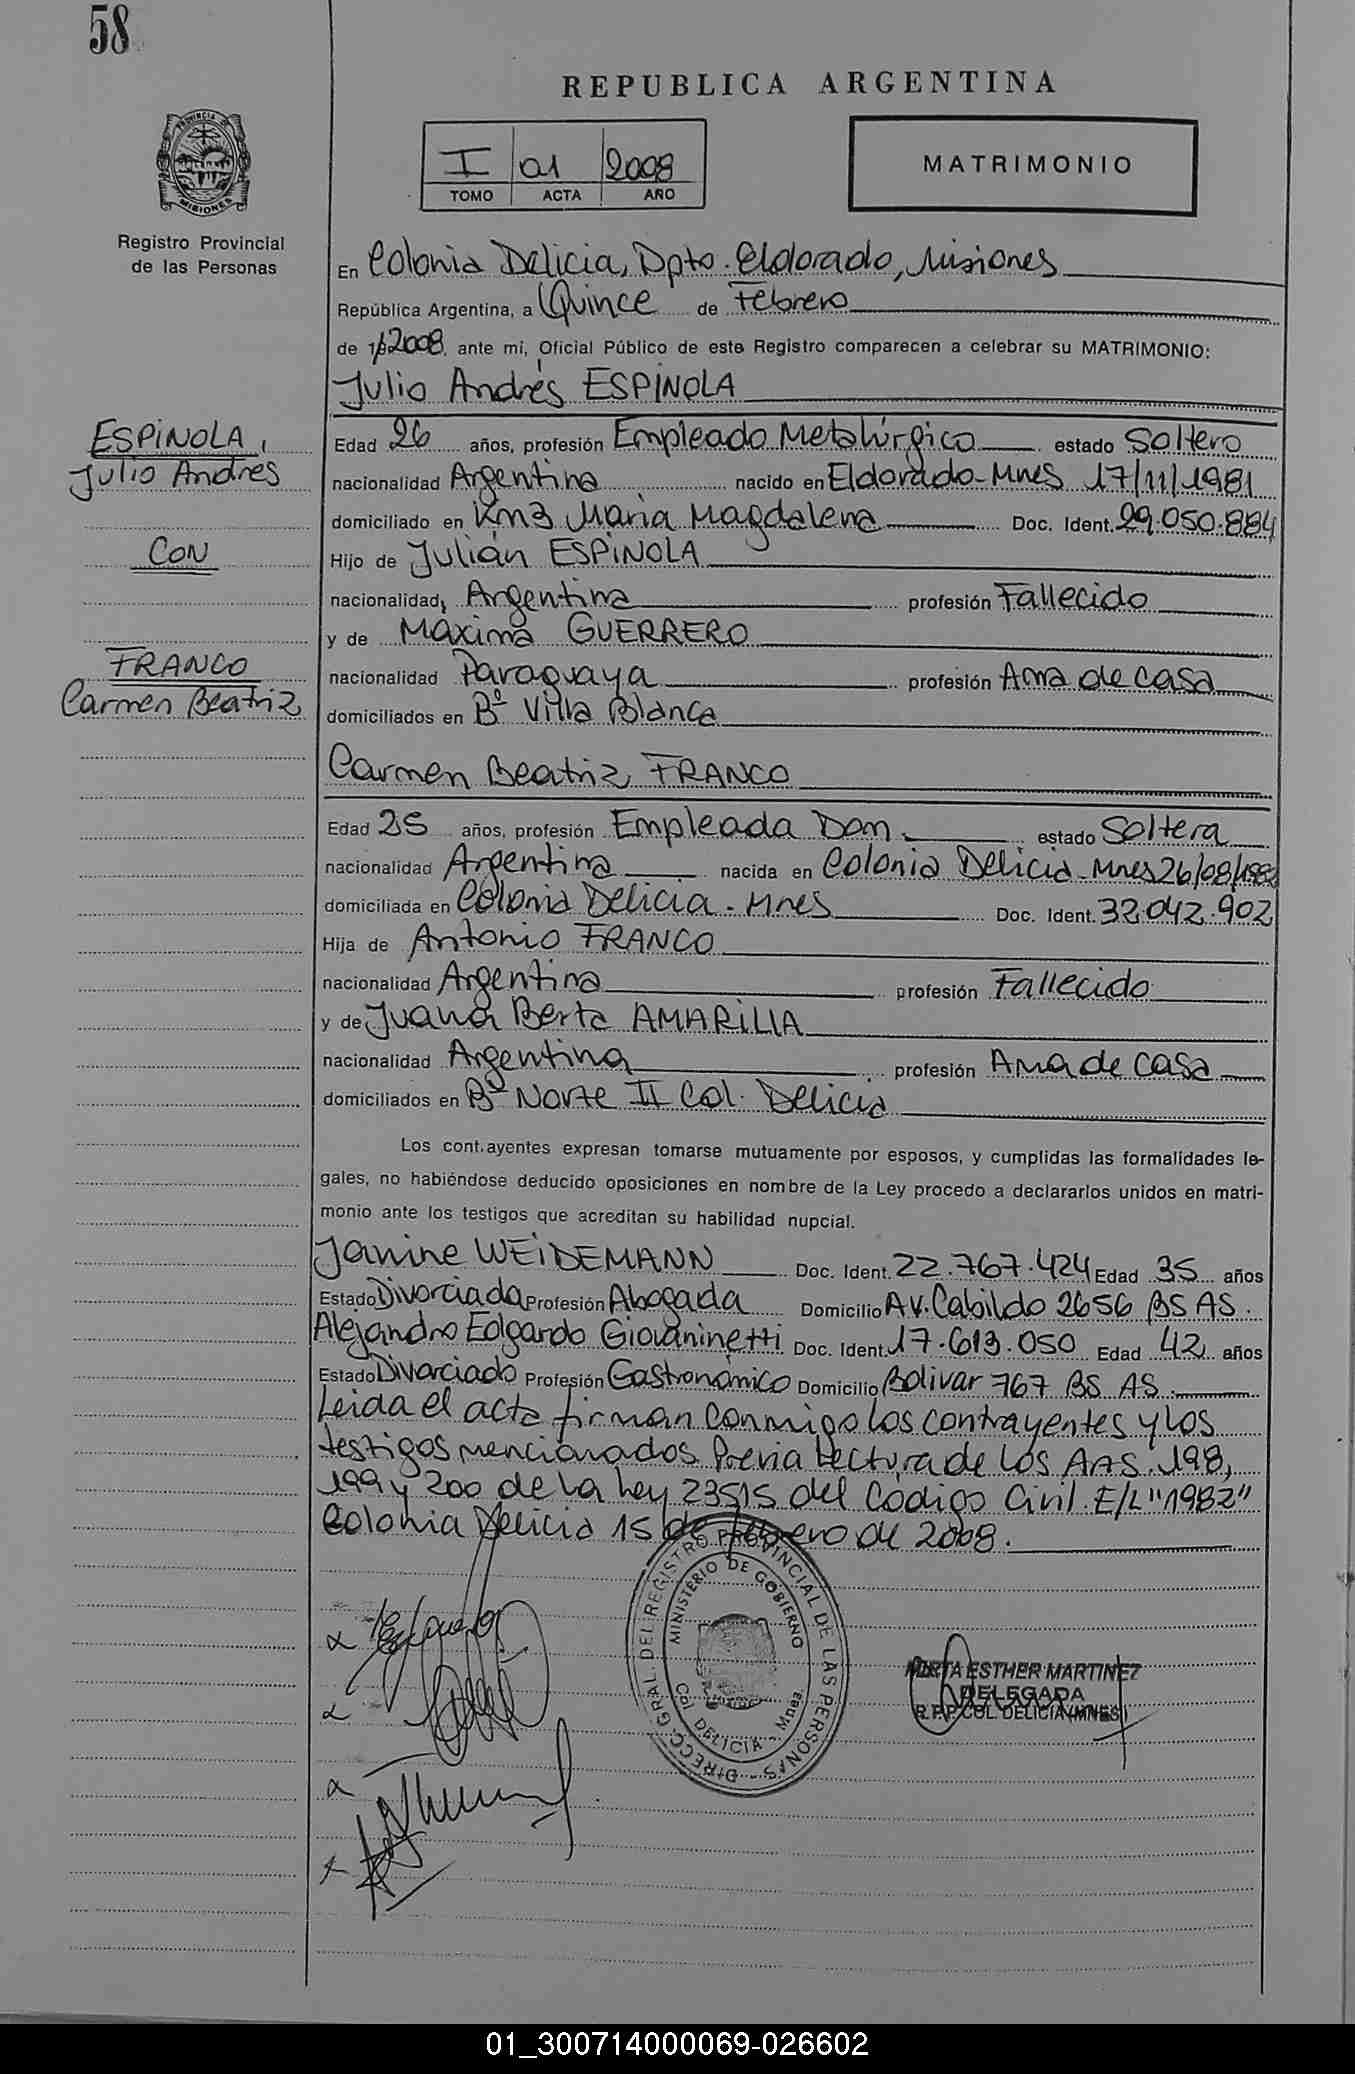 58
REPUBLICA ARGENTINA
PROVINCIA DE
MISIONES
Registro Provincial
de las Personas
I 01 2008
TOMO ACTA AÑO
MATRIMONIO
En Colonia Delicia, Dpto. Eldorado, Misiones
República Argentina, a Quince de Febrero
de 19 2008, ante mí, Oficial Público de este Registro comparecen a celebrar su MATRIMONIO:
Julio Andrés ESPINOLA
ESPINOLA,
Julio Andrés
CON
FRANCO
Carmen Beatriz
Edad 26 años, profesión Empleado Metalúrgico estado Soltero
nacionalidad Argentina nacido en Eldorado-Mnes 17/11/1981
domiciliado en Km3 Maria Magdalena Doc. Ident. 29.050.884
Hijo de Julián ESPINOLA
nacionalidad Argentina profesión Fallecido
y de Máxima GUERRERO
nacionalidad Paraguaya profesión Ama de casa
domiciliados en Bº Villa Blanca
Carmen Beatriz FRANCO
Edad 25 años, profesión Empleada Dom. estado Soltera
nacionalidad Argentina nacida en Colonia Delicia-Mnes 26/08/1982
domiciliada en Colonia Delicia - Mnes Doc. Ident. 32.042.902
Hija de Antonio FRANCO
nacionalidad Argentina profesión Fallecido
y de Juana Berta AMARILLA
nacionalidad Argentina profesión Ama de casa
domiciliados en Bº Norte II Col. Delicia
Los cont.ayentes expresan tomarse mutuamente por esposos, y cumplidas las formalidades le-
gales, no habiéndose deducido oposiciones en nombre de la Ley procedo a declararlos unidos en matri-
monio ante los testigos que acreditan su habilidad nupcial.
Janine WEIDEMANN Doc. Ident. 22.767.424 Edad 35 años
Estado Divorciada Profesión Abogada Domicilio AV. Cabildo 2656 BS AS.
Alejandro Edgardo Giovaninetti Doc. Ident. 17.613.050 Edad 42 años
Estado Divorciado Profesión Gastronómico Domicilio Bolivar 767 BS AS.
Leida el acta firman conmigo los contrayentes y los
testigos mencionados Previa Lectura de los AAS. 198,
199 y 200 de la Ley 23515 del Código Civil. E/L "1982"
Colonia Delicia 15 de febrero de 2008.
DIRECC. GRAL. DEL REGISTRO PROVINCIAL DE LAS PERSONAS
MINISTERIO DE GOBIERNO
Col. DELICIA - Mnes
MIRTA ESTHER MARTINEZ
DELEGADA
R.P.P. COL. DELICIA (MNES)
01_300714000069-026602